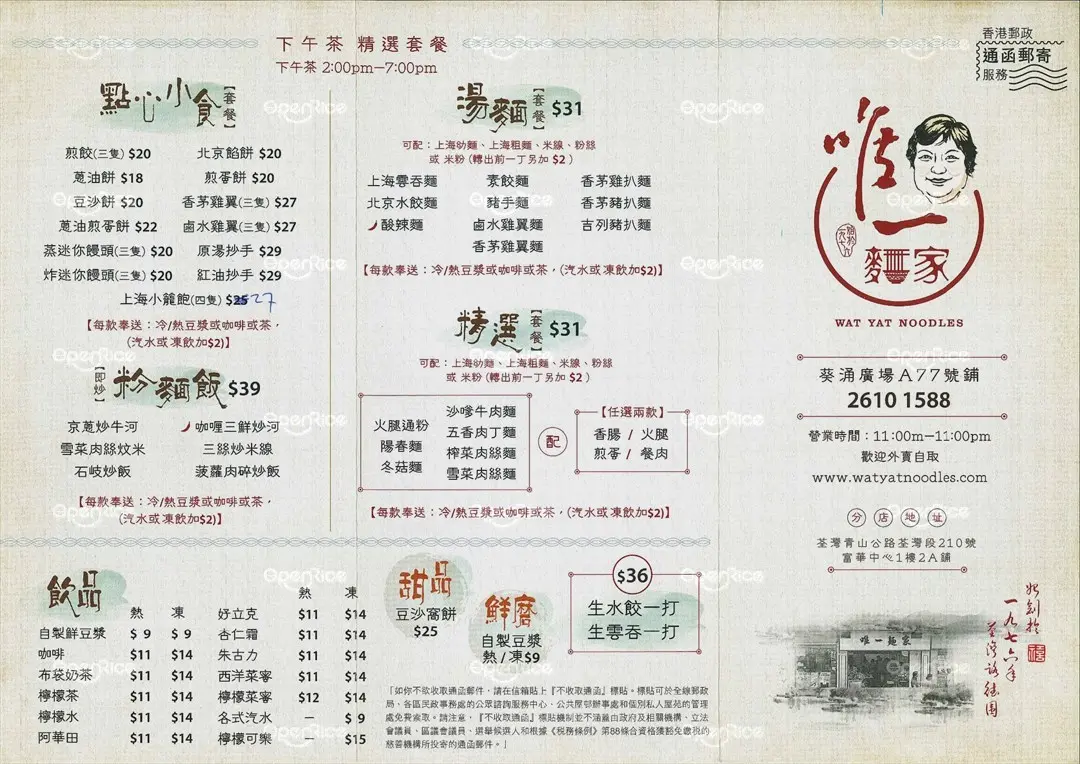 下午茶 精選套餐
下午茶 2:00pm—7:00pm
點心小食【套餐】
煎餃(三隻) $20 北京餡餅 $20
蔥油餅 $18 煎蛋餅 $20
豆沙餅 $20 香茅雞翼(三隻) $27
蔥油煎蛋餅 $22 鹵水雞翼(三隻) $27
蒸迷你饅頭(三隻) $20 原湯抄手 $29
炸迷你饅頭(三隻) $20 紅油抄手 $29
上海小籠飽(四隻) $25 27
【每款奉送：冷/熱豆漿或咖啡或茶，
(汽水或凍飲加$2)】
【即炒】粉麵飯 $39
京蔥炒牛河 咖喱三鮮炒河
雪菜肉絲炆米 三絲炒米線
石岐炒飯 菠蘿肉碎炒飯
【每款奉送：冷/熱豆漿或咖啡或茶，
(汽水或凍飲加$2)】
湯麵【套餐】 $31
可配：上海幼麵、上海粗麵、米線、粉絲
或 米粉 (轉出前一丁另加 $2 )
上海雲吞麵 素餃麵 香茅雞扒麵
北京水餃麵 豬手麵 香茅豬扒麵
酸辣麵 鹵水雞翼麵 吉列豬扒麵
香茅雞翼麵
【每款奉送：冷/熱豆漿或咖啡或茶，(汽水或凍飲加$2)】
精選【套餐】 $31
可配：上海幼麵、上海粗麵、米線、粉絲
或 米粉 (轉出前一丁另加 $2 )
火腿通粉
陽春麵
冬菇麵
沙嗲牛肉麵
五香肉丁麵
榨菜肉絲麵
雪菜肉絲麵
配
【任選兩款】
香腸 / 火腿
煎蛋 / 餐肉
【每款奉送：冷/熱豆漿或咖啡或茶，(汽水或凍飲加$2)】
香港郵政
通函郵寄
服務
唯一
麵家
WAT YAT NOODLES
葵涌廣場A77號鋪
2610 1588
營業時間：11:00am—11:00pm
歡迎外賣自取
www.watyatnoodles.com
分店地址
荃灣青山公路荃灣段210號
富華中心1樓2A鋪
飲品
熱 凍
自製鮮豆漿 $ 9 $ 9
咖啡 $11 $14
布袋奶茶 $11 $14
檸檬茶 $11 $14
檸檬水 $11 $14
阿華田 $11 $14
熱 凍
好立克 $11 $14
杏仁霜 $11 $14
朱古力 $11 $14
西洋菜蜜 $11 $14
檸檬菜蜜 $12 $14
各式汽水 — $ 9
檸檬可樂 — $15
甜品
豆沙窩餅
$25
鮮磨
自製豆漿
熱 / 凍$9
$36
生水餃一打
生雲吞一打
「如你不欲收取通函郵件，請在信箱貼上『不收取通函』標貼。標貼可於全線郵政
局、各區民政事務處的公眾諮詢服務中心、公共屋邨辦事處和個別私人屋苑的管理
處免費索取。請注意，『不收取通函』標貼機制並不涵蓋由政府及相關機構、立法
會議員、區議會議員、選舉候選人和根據《稅務條例》第88條合資格獲豁免繳稅的
慈善機構所投寄的通函郵件。」
唯一麵家
始創於
一九七六年
荃灣路德圍
OpenRice